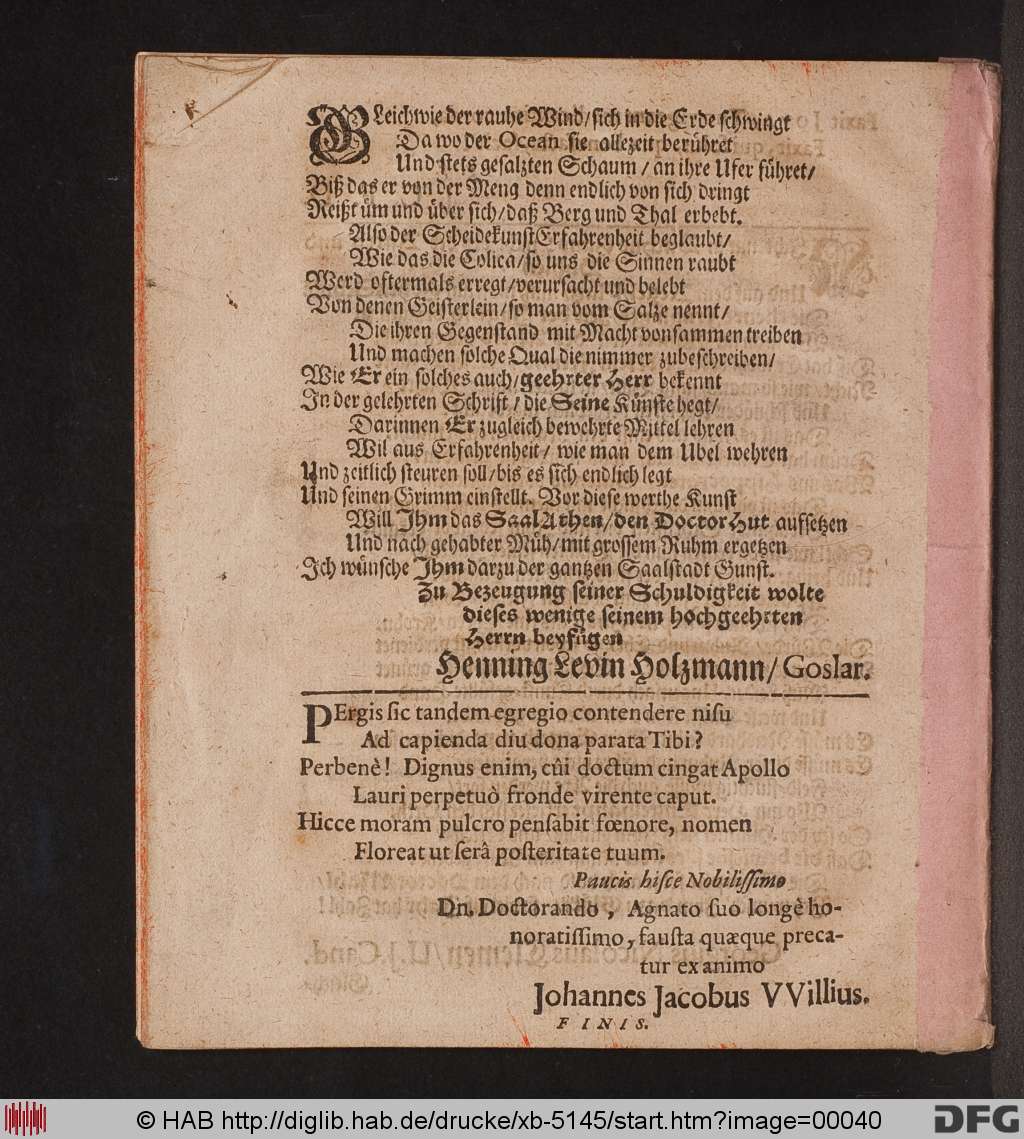 GLeichwie der rauhe Wind/sich in die Erde schwingt
Da wo der Ocean sie allezeit berühret
Und stets gesalzten Schaum / an ihre Ufer führet/
Biß das er von der Meng denn endlich von sich dringt
Reißt üm und über sich/daß Berg und Thal erbebt.
Also der ScheidekunstErfahrenheit beglaubt/
Wie das die Colica/so uns die Sinnen raubt
Werd oftermals erregt/verursacht und belebt
Von denen Geisterlein/so man vom Salze nennt/
Die ihren Gegenstand mit Macht vonsammen treiben
Und machen solche Qual die nimmer zubeschreiben/
Wie Er ein solches auch/geehrter Herr bekennt
In der gelehrten Schrift / die Seine Künste hegt/
Darinnen Er zugleich bewehrte Mittel lehren
Wil aus Erfahrenheit/ wie man dem Ubel wehren
Und zeitlich steuren soll/bis es sich endlich legt
Und seinen Grimm einstellt. Vor diese werthe Kunst
Will Ihm das SaalAthen/den Doctor Hut aufsetzen
Und nach gehabter Müh/mit grossem Ruhm ergetzen
Ich wünsche Ihm darzu der gantzen Saalstadt Gunst.
Zu Bezeugung seiner Schuldigkeit wolte
dieses wenige seinem hochgeehrten
Herrn beyfügen
Henning Levin Holzmann/ Goslar.
PErgis sic tandem egregio contendere nisu
Ad capienda diu dona parata Tibi?
Perbenè! Dignus enim, cûi doctum cingat Apollo
Lauri perpetuò fronde virente caput.
Hicce moram pulcro pensabit fœnore, nomen
Floreat ut serâ posteritate tuum.
Paucis hisce Nobilissimo
Dn. Doctorando, Agnato suo longè ho-
noratissimo, fausta quæque preca-
tur ex animo
Johannes Jacobus VVillius.
FINIS.
© HAB http://diglib.hab.de/drucke/xb-5145/start.htm?image=00040
DFG